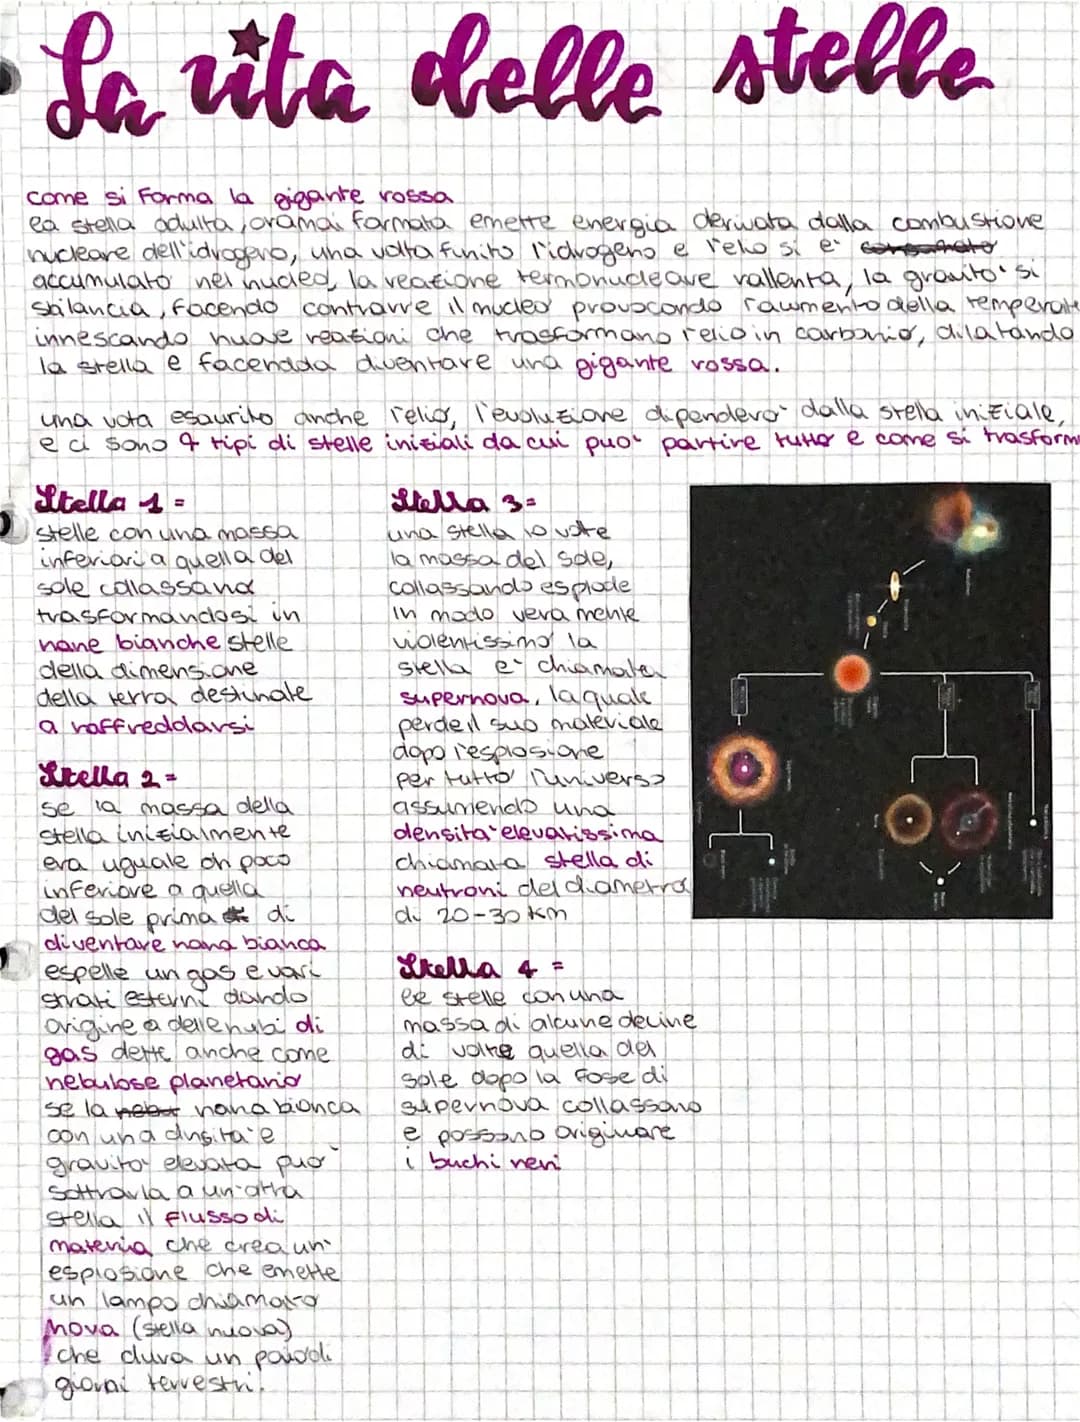 La vita delle stelle
come si forma la gigante rossa
la stella adulta, oramai formata emette energia derivata dalla combustione
nucleare dell'idrogeno, una volta funito l'idrogeno e l'elio si e' consumato
accumulato nel nucleo, la reazione termonucleare rallenta, la gravita' si
sbilancia, facendo contrarre il nucleo provocando l'aumento della temperat
innescando nuove reazioni che trasformano l'elio in carbonio, dilatando
la stella e facendola diventare una gigante rossa.
una vota esaurito anche l'elio, l'evoluzione dipendera' dalla stella iniziale,
e ci sono 4 tipi di stelle iniziali da cui puo' partire tutto e come si trasform
Stella 1 =
stelle con una massa
inferiori a quella del
sole collassano
trasformandosi in
nane bianche stelle
della dimensione
della terra destinate
a raffreddarsi
Stella 2 =
se la massa della
stella inizialmente
era uguale oh poco
inferiore a quella
del sole prima di
diventare nana bianca
espelle un gas e vari
strati esterni dando
origine a delle nubi di
gas dette anche come
nebulose planetario
se la nebu nana bianca
con una dnsita' e
gravita' elevata puo'
sottrarla a un'altra
stella il flusso di
materia che crea un'
esplosione che emette
un lampo chiamato
nova (stella nuova)
che dura un paio di
giorni terrestri.
Stella 3 =
una stella 10 volte
la massa del sole,
collassando esplode
in modo veramente
violentissimo la
stella e' chiamata
supernova, la quale
perde il suo materiale
dopo l'esplosione
per tutto l'universo
assumendo una
densita' elevatissima
chiamata stella di
neutroni del diametro
di 20-30 km
Stella 4 =
le stelle con una
massa di alcune decine
di volte quella del
sole dopo la fase di
supernova collassano
e possono originare
i buchi neri